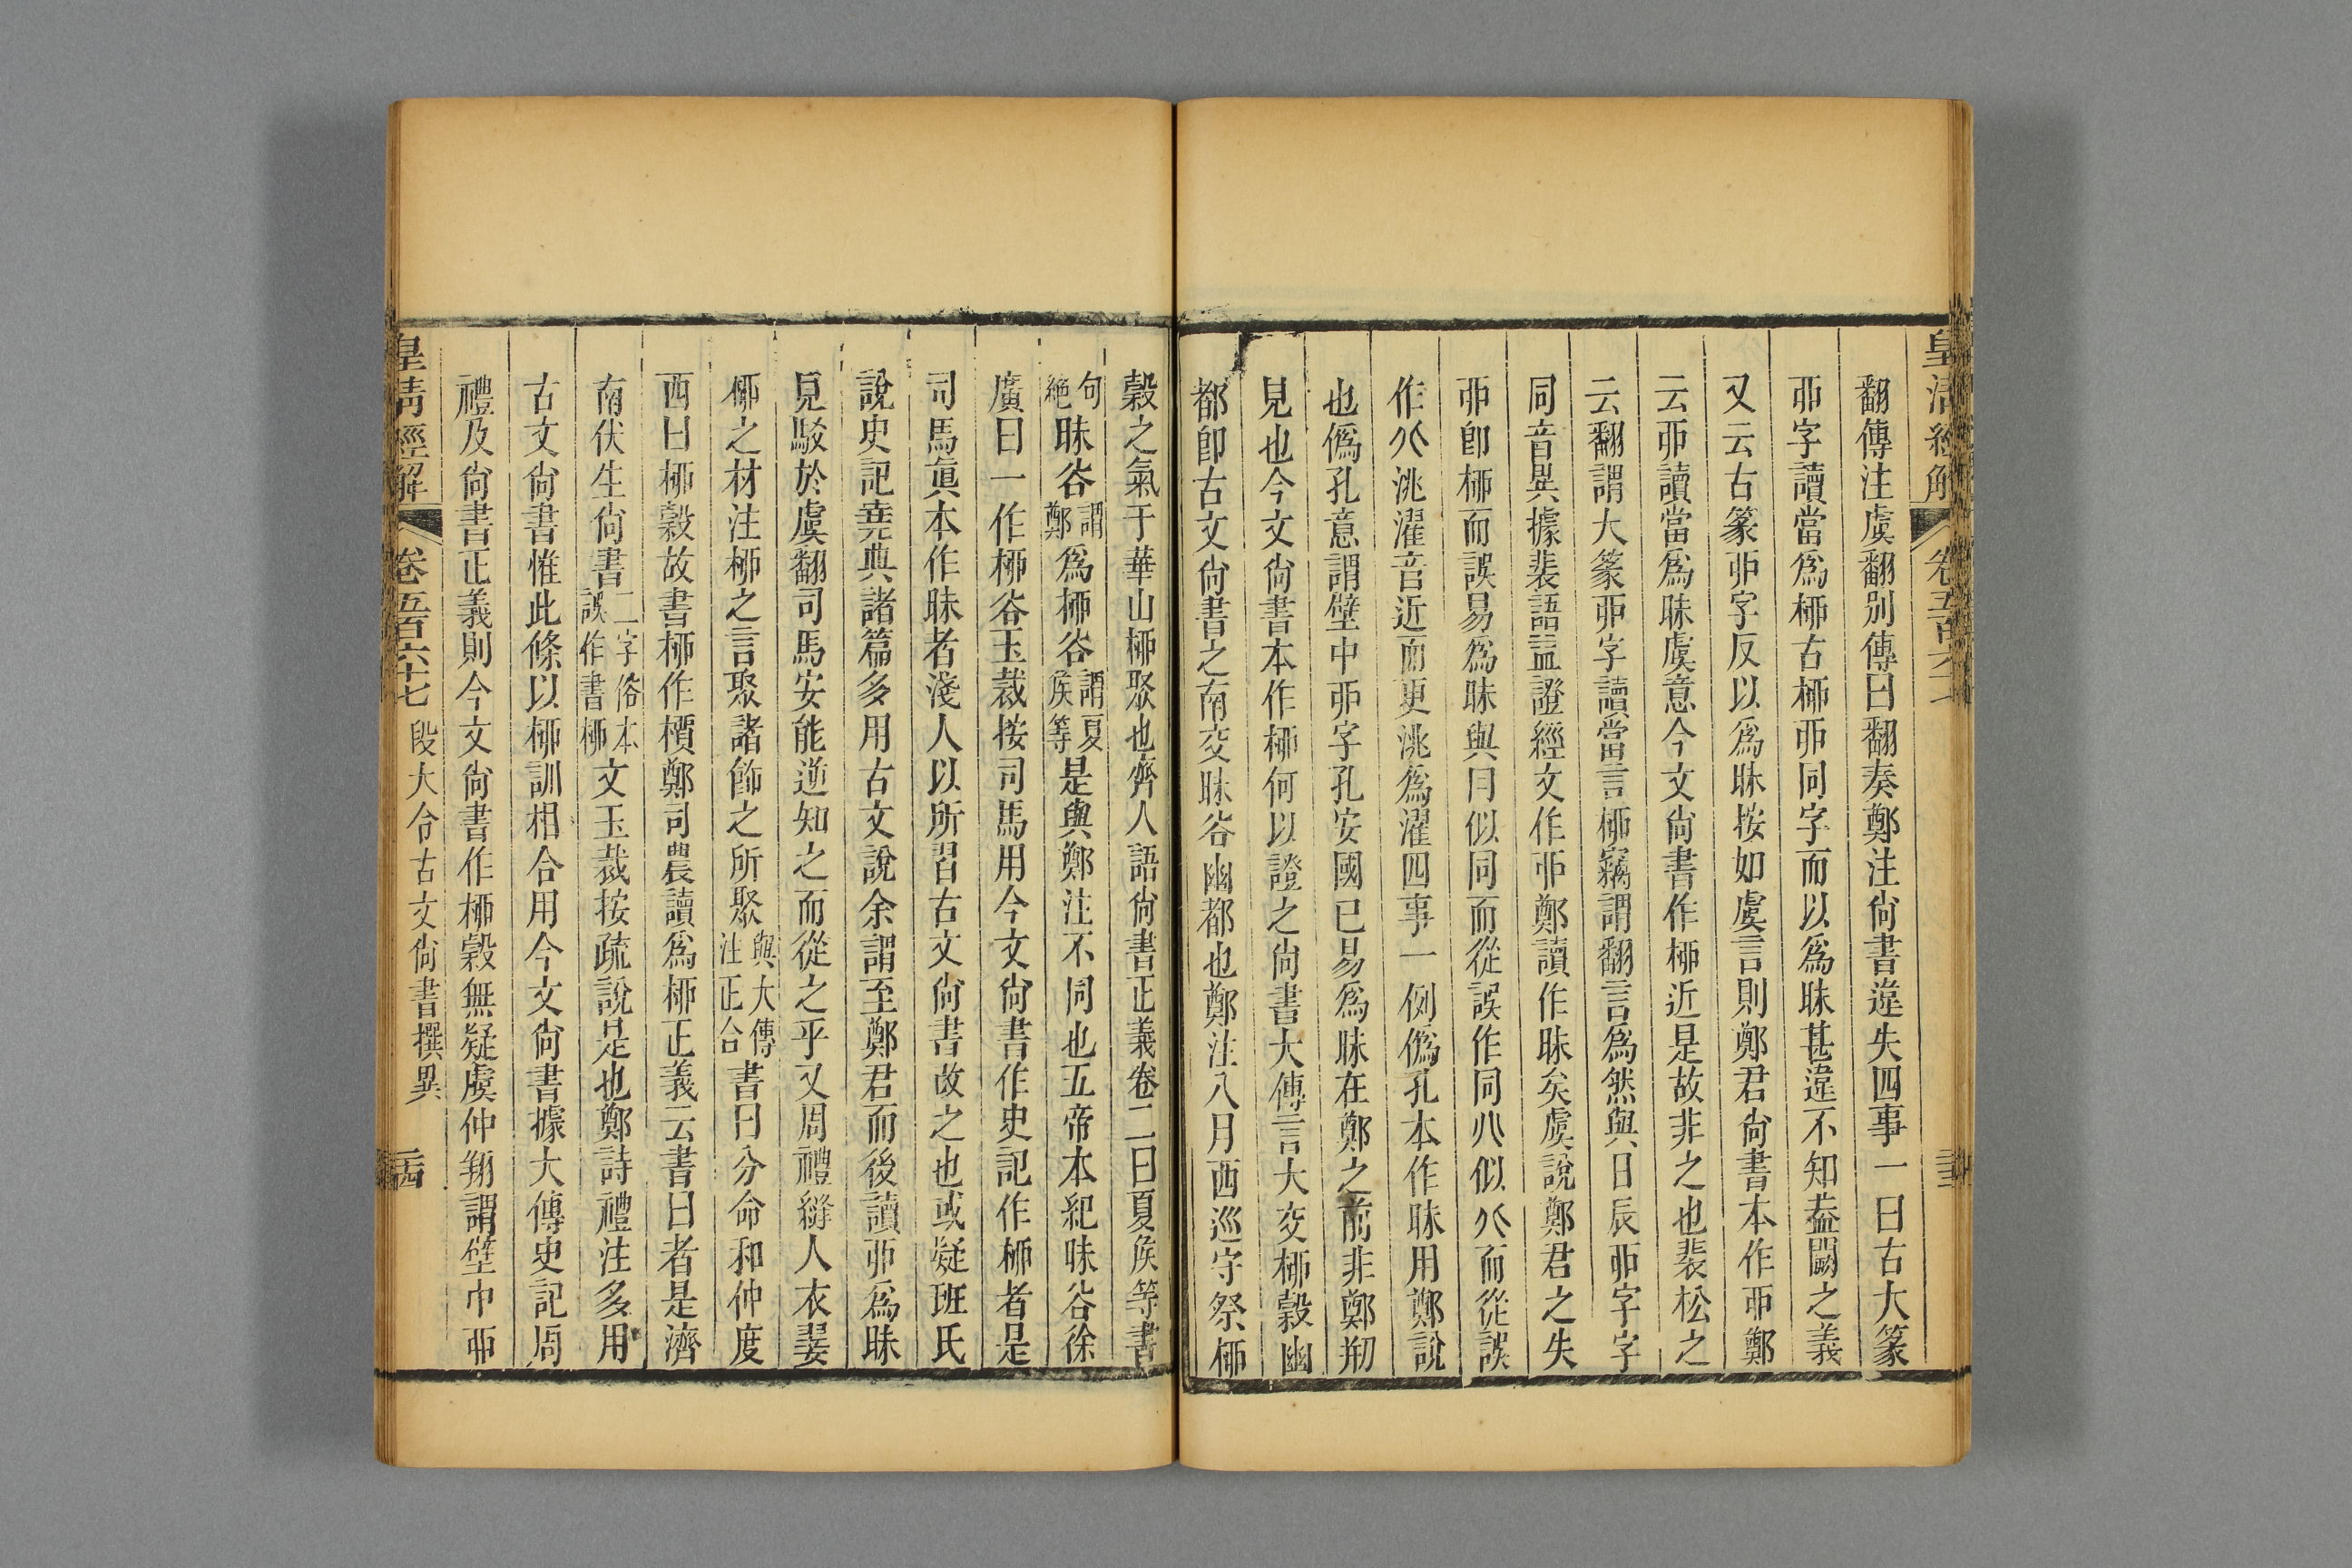 皇清經解 卷五百六十七
翻傳注虞翻別傳曰翻奏鄭注尙書違失四事一曰古大篆
丣字讀當爲桺古桺丣同字而以爲昧甚違不知葢闕之義
又云古篆丣字反以爲昧按如虞言則鄭君尙書本作丣鄭
云丣讀當爲昧虞意今文尙書作桺近是故非之也裴松之
云翻謂大篆丣字讀當言桺竊謂翻言爲然與日辰丣字字
同音異據裴語葢證經文作丣鄭讀作昧矣虞說鄭君之失
丣卽桺而誤易爲昧與曰似同而從誤作同𠔁似𠔁而從誤
作𠔁洮濯音近而更洮爲濯四事一例僞孔本作昧用鄭說
也僞孔意謂壁中丣字孔安國已易爲昧在鄭之前非鄭刱
見也今文尙書本作桺何以證之尙書大傳言大交桺穀幽
都卽古文尙書之南交昧谷幽都也鄭注八月西巡守祭桺
穀之氣于華山桺聚也齊人語尙書正義卷二曰夏矦等書
句絶昧谷謂鄭爲桺谷謂夏矦等是與鄭注不同也五帝本紀昧谷徐
廣曰一作桺谷玉裁按司馬用今文尙書作史記作桺者是
司馬眞本作昧者淺人以所習古文尙書改之也或疑班氏
說史記堯典諸篇多用古文說余謂至鄭君而後讀丣爲昧
見駁於虞翻司馬安能逆知之而從之乎又周禮縫人衣翣
桺之材注桺之言聚諸飾之所聚與大傳注正合書曰分命和仲度
西曰桺穀故書桺作櫝鄭司農讀爲桺正義云書曰者是濟
南伏生尙書二字俗本誤作書桺文玉裁按疏說是也鄭詩禮注多用
古文尙書惟此條以桺訓相合用今文尙書據大傳史記周
禮及尙書正義則今文尙書作桺穀無疑虞仲翔謂壁中丣
皇清經解 卷五百六十七 段大令古文尙書撰異 二十四